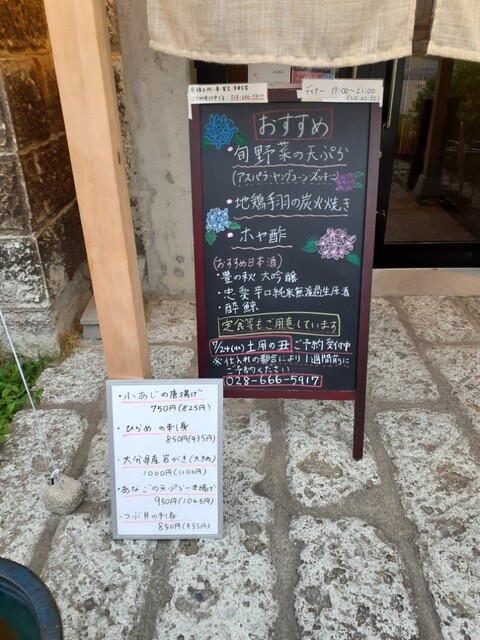 ディナー 17:00〜21:00
028-666-5917
おすすめ
・旬野菜の天ぷら
(アスパラ・ヤングコーン・ズッキーニ)
・地鶏手羽の炭火焼き
・ホヤ酢
(おすすめ日本酒)
・豊の秋 大吟醸
・忠愛 辛口純米無濾過生原酒
・酔鯨
定食等もご用意しています
7/24(日)土用の丑 ご予約受付中
※仕入れの都合により1週間前に
ご予約ください
028-666-5917
・小あじの唐揚げ
750円(825円)
・ひらめの刺身
850円(935円)
・大分県産岩がき(大きめ)
1000円(1100円)
・あなごの天ぷら一本揚げ
950円(1045円)
・つぶ貝の刺身
850円(935円)